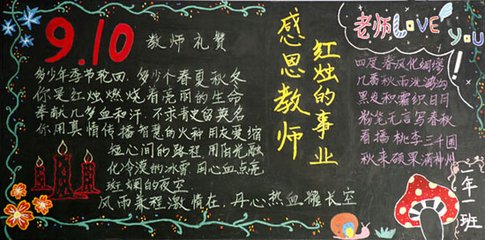 9.10
教师礼赞
多少年季节轮回，多少个春夏秋冬
你是红烛燃烧着亮丽的生命
奉献几多血和汗，不求青史留英名
你用真情传播智慧的火种，用友爱缩
短心间的路程，用阳光融
化冷漠的冰雪，用心血点亮
斑斓的夜空
风雨来程激情在，丹心热血耀长空
感恩教师
红烛的事业
老师LOVE
you!
四度春风化绸缪
几番秋雨洗鸿沟
黑发积霜织日月
粉笔无言写春秋
春播桃李三千圃
秋来硕果满神州
二年一班